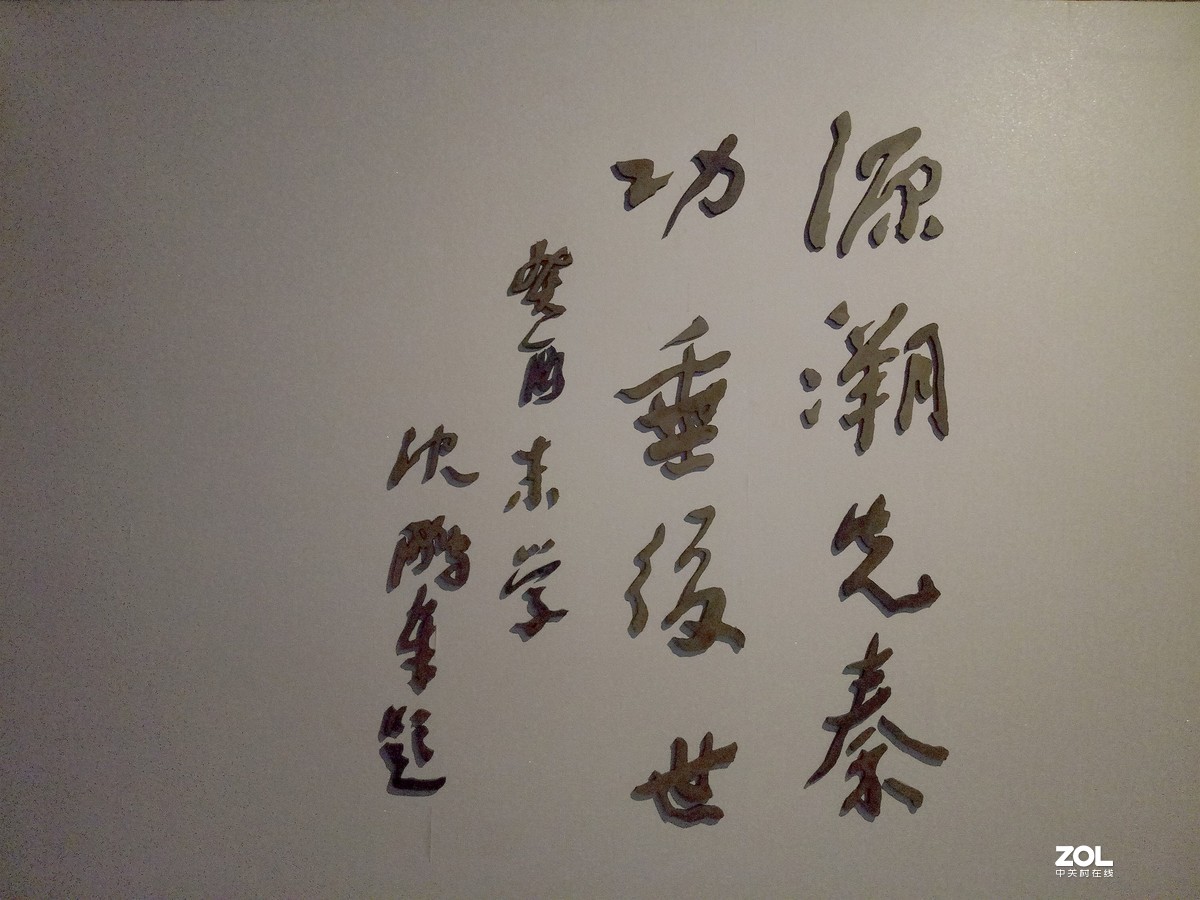 源溯先秦
功垂後世
癸酉末学
沈鹏年题
ZOL
中关村在线